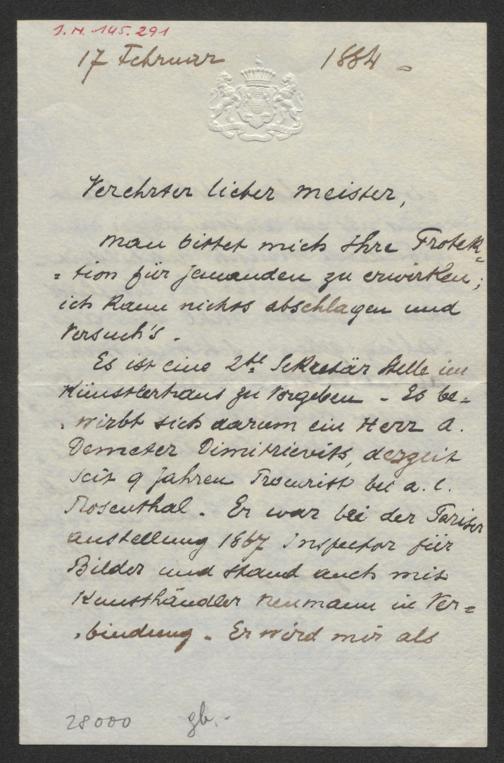 J.N. 145.291
17 Februar 1884
Verehrter lieber Meister,
Man bittet mich Ihre Protek-
-tion für jemanden zu erwirken;
ich kann nichts abschlagen und
versuch's.
Es ist eine 2te Sekretär Stelle im
Künstlerhaus zu vergeben - Es be-
-wirbt sich darum ein Herr A.
Demeter Dimitrievits, derzeit
seit 9 Jahren Procurist bei A. C.
Rosenthal. Er war bei der Pariser
Austellung 1867 Inspector für
Bilder und stand auch mit
Kunsthändler Neumann in Ver=
-bindung. Er wird mir als
28000 gb.-